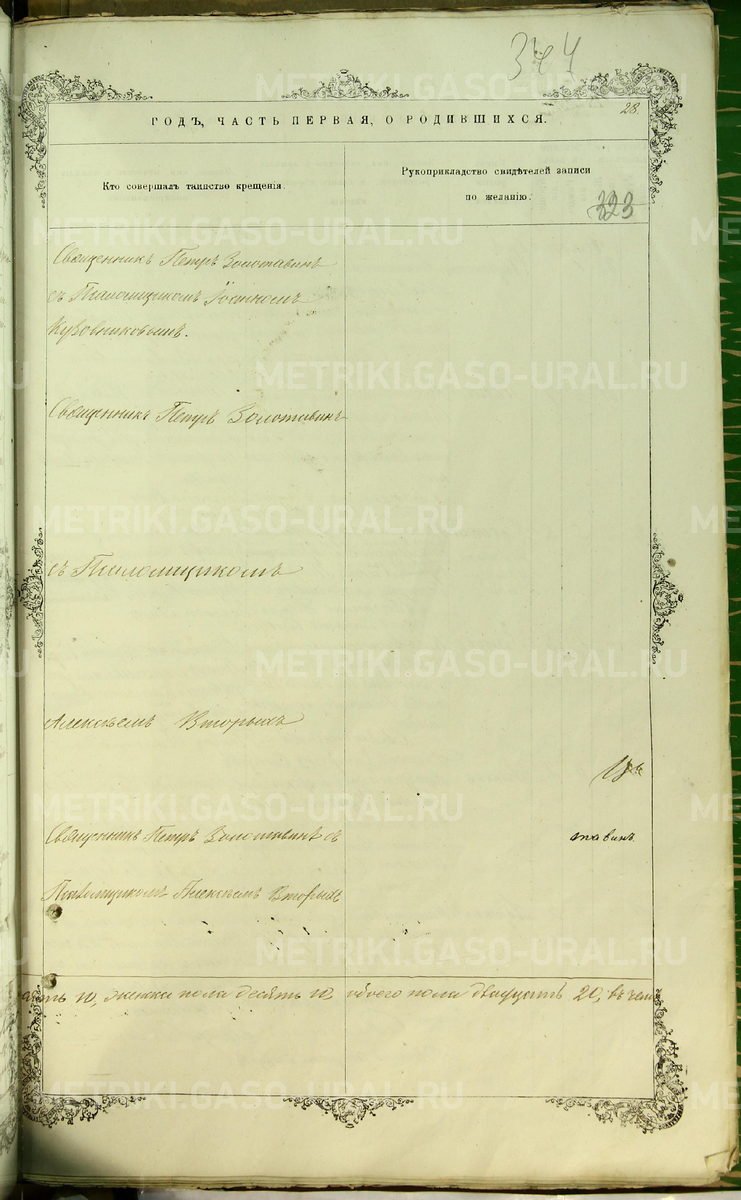 28.
ГОДЪ, ЧАСТЬ ПЕРВАЯ, О РОДИВШИХСЯ.
Кто совершалъ таинство крещенія.
Рукоприкладство свидѣтелей записи
по желанію.
323
Священникъ Петръ Золотавинъ
съ Псаломщикомъ
Кузовниковымъ.
Священникъ Петръ Золотавинъ
съ Псаломщикомъ
Алексѣемъ Вторыхъ
Священникъ Петръ Золотавинъ съ
тавинъ
Псаломщикомъ Алексѣемъ Вторыхъ
10, женска пола десять 10, обоего пола двадцать 20, въ чемъ
METRIKI.GASO-URAL.RU